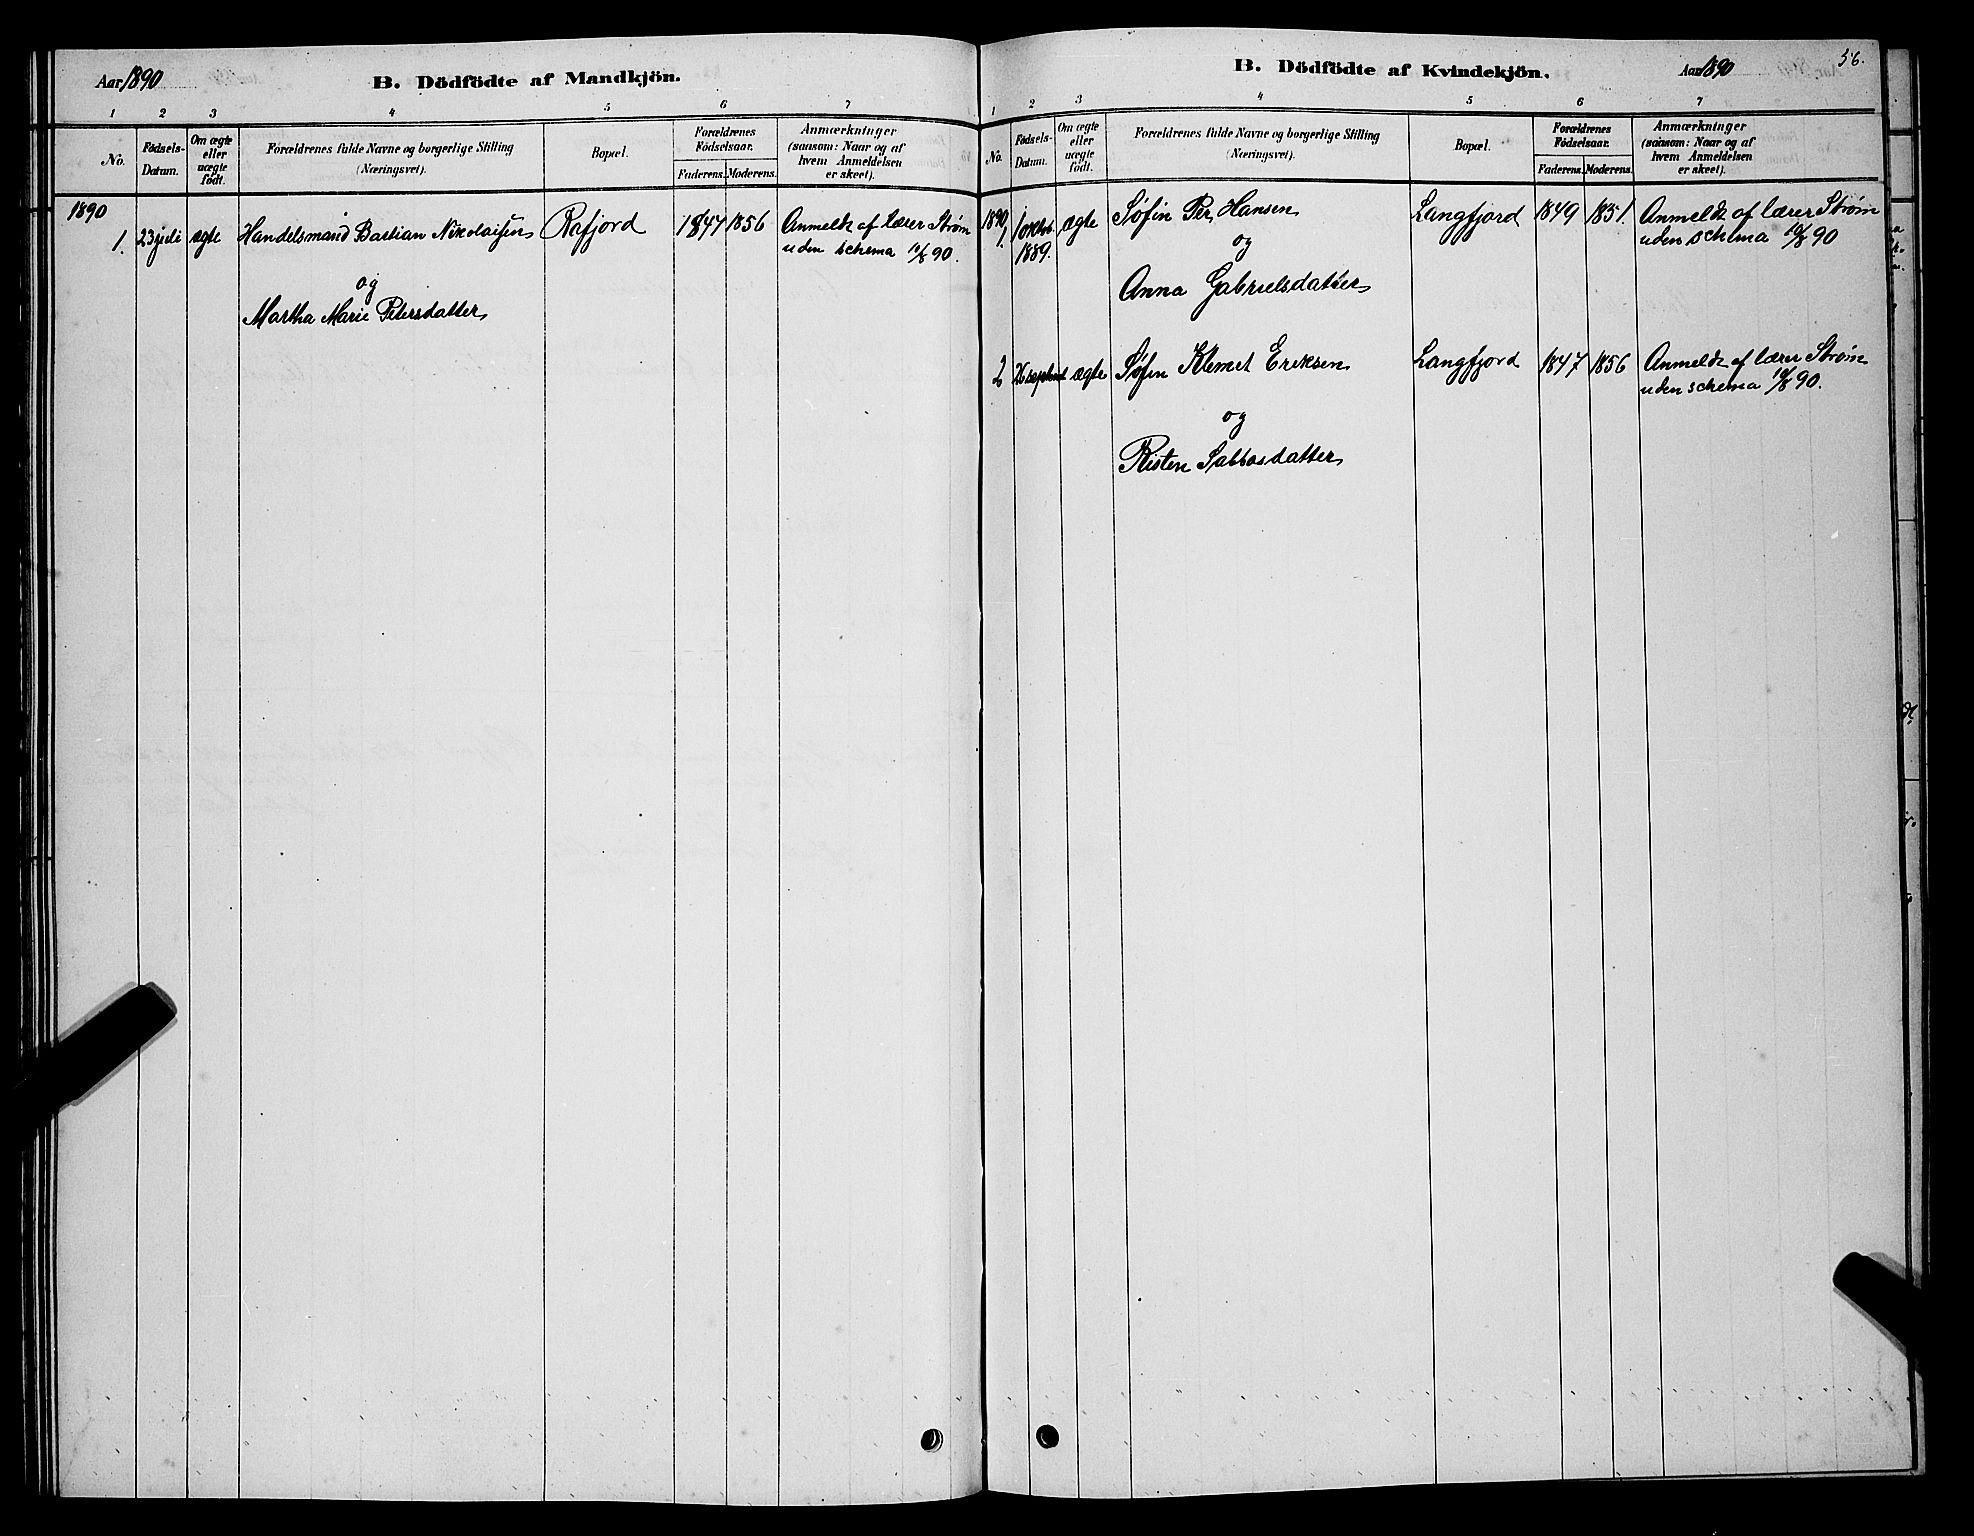 Aar 1890
B. Dödfödte af Mandkjön.
1 2 3 4 5 6 7
No.
Födsels-Datum.
Om ægte eller uægte födt.
Forældrenes fulde Navne og borgerlige Stilling
(Næringsvei).
Bopæl.
Forældrenes Födselsaar.
Faderens. Moderens.
Anmærkninger
(saasom: Naar og af
hvem Anmeldelsen
er skeet).
1890
1. 23 juli ægte Handelsmand Bastian Nikolaisen Rafjord 1847 1856 Anmeldt af lærer Strøm
uden schema 90.
og
Martha Marie Petersdatter
B. Dödfödte af Kvindekjön.
Aar 1890
56.
1 2 3 4 5 6 7
No.
Födsels-Datum.
Om ægte eller uægte födt.
Forældrenes fulde Navne og borgerlige Stilling
(Næringsvei).
Bopæl.
Forældrenes Födselsaar.
Faderens. Moderens.
Anmærkninger
(saasom: Naar og af
hvem Anmeldelsen
er skeet).
1890
1. 1 oktob. 1889. ægte Søfin Per Hansen Langfjord 1849 1851. Anmeldt af lærer Strøm
uden schema 10/8 90
og
Anna Gabrielsdatter
2 ægte Søfin Klemet Eriksen Langfjord 1847 1856 Anmeldt af lærer Strøm
uden schema 10/8 90.
og
Risten Sabbasdatter